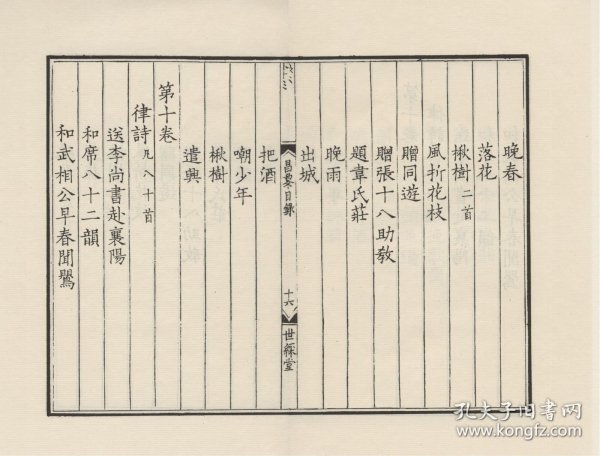 晚春
落花
楸樹二首
風折花枝
贈同遊
贈張十八助教
題韋氏莊
晚雨
出城
昌黎目錄
十六
世綵堂
把酒
嘲少年
楸樹
遣興
第十卷
律詩凡八十首
送李尚書赴襄陽
和席八十二韻
和武相公早春聞鶯
孔夫子旧书网
www.kongfz.com